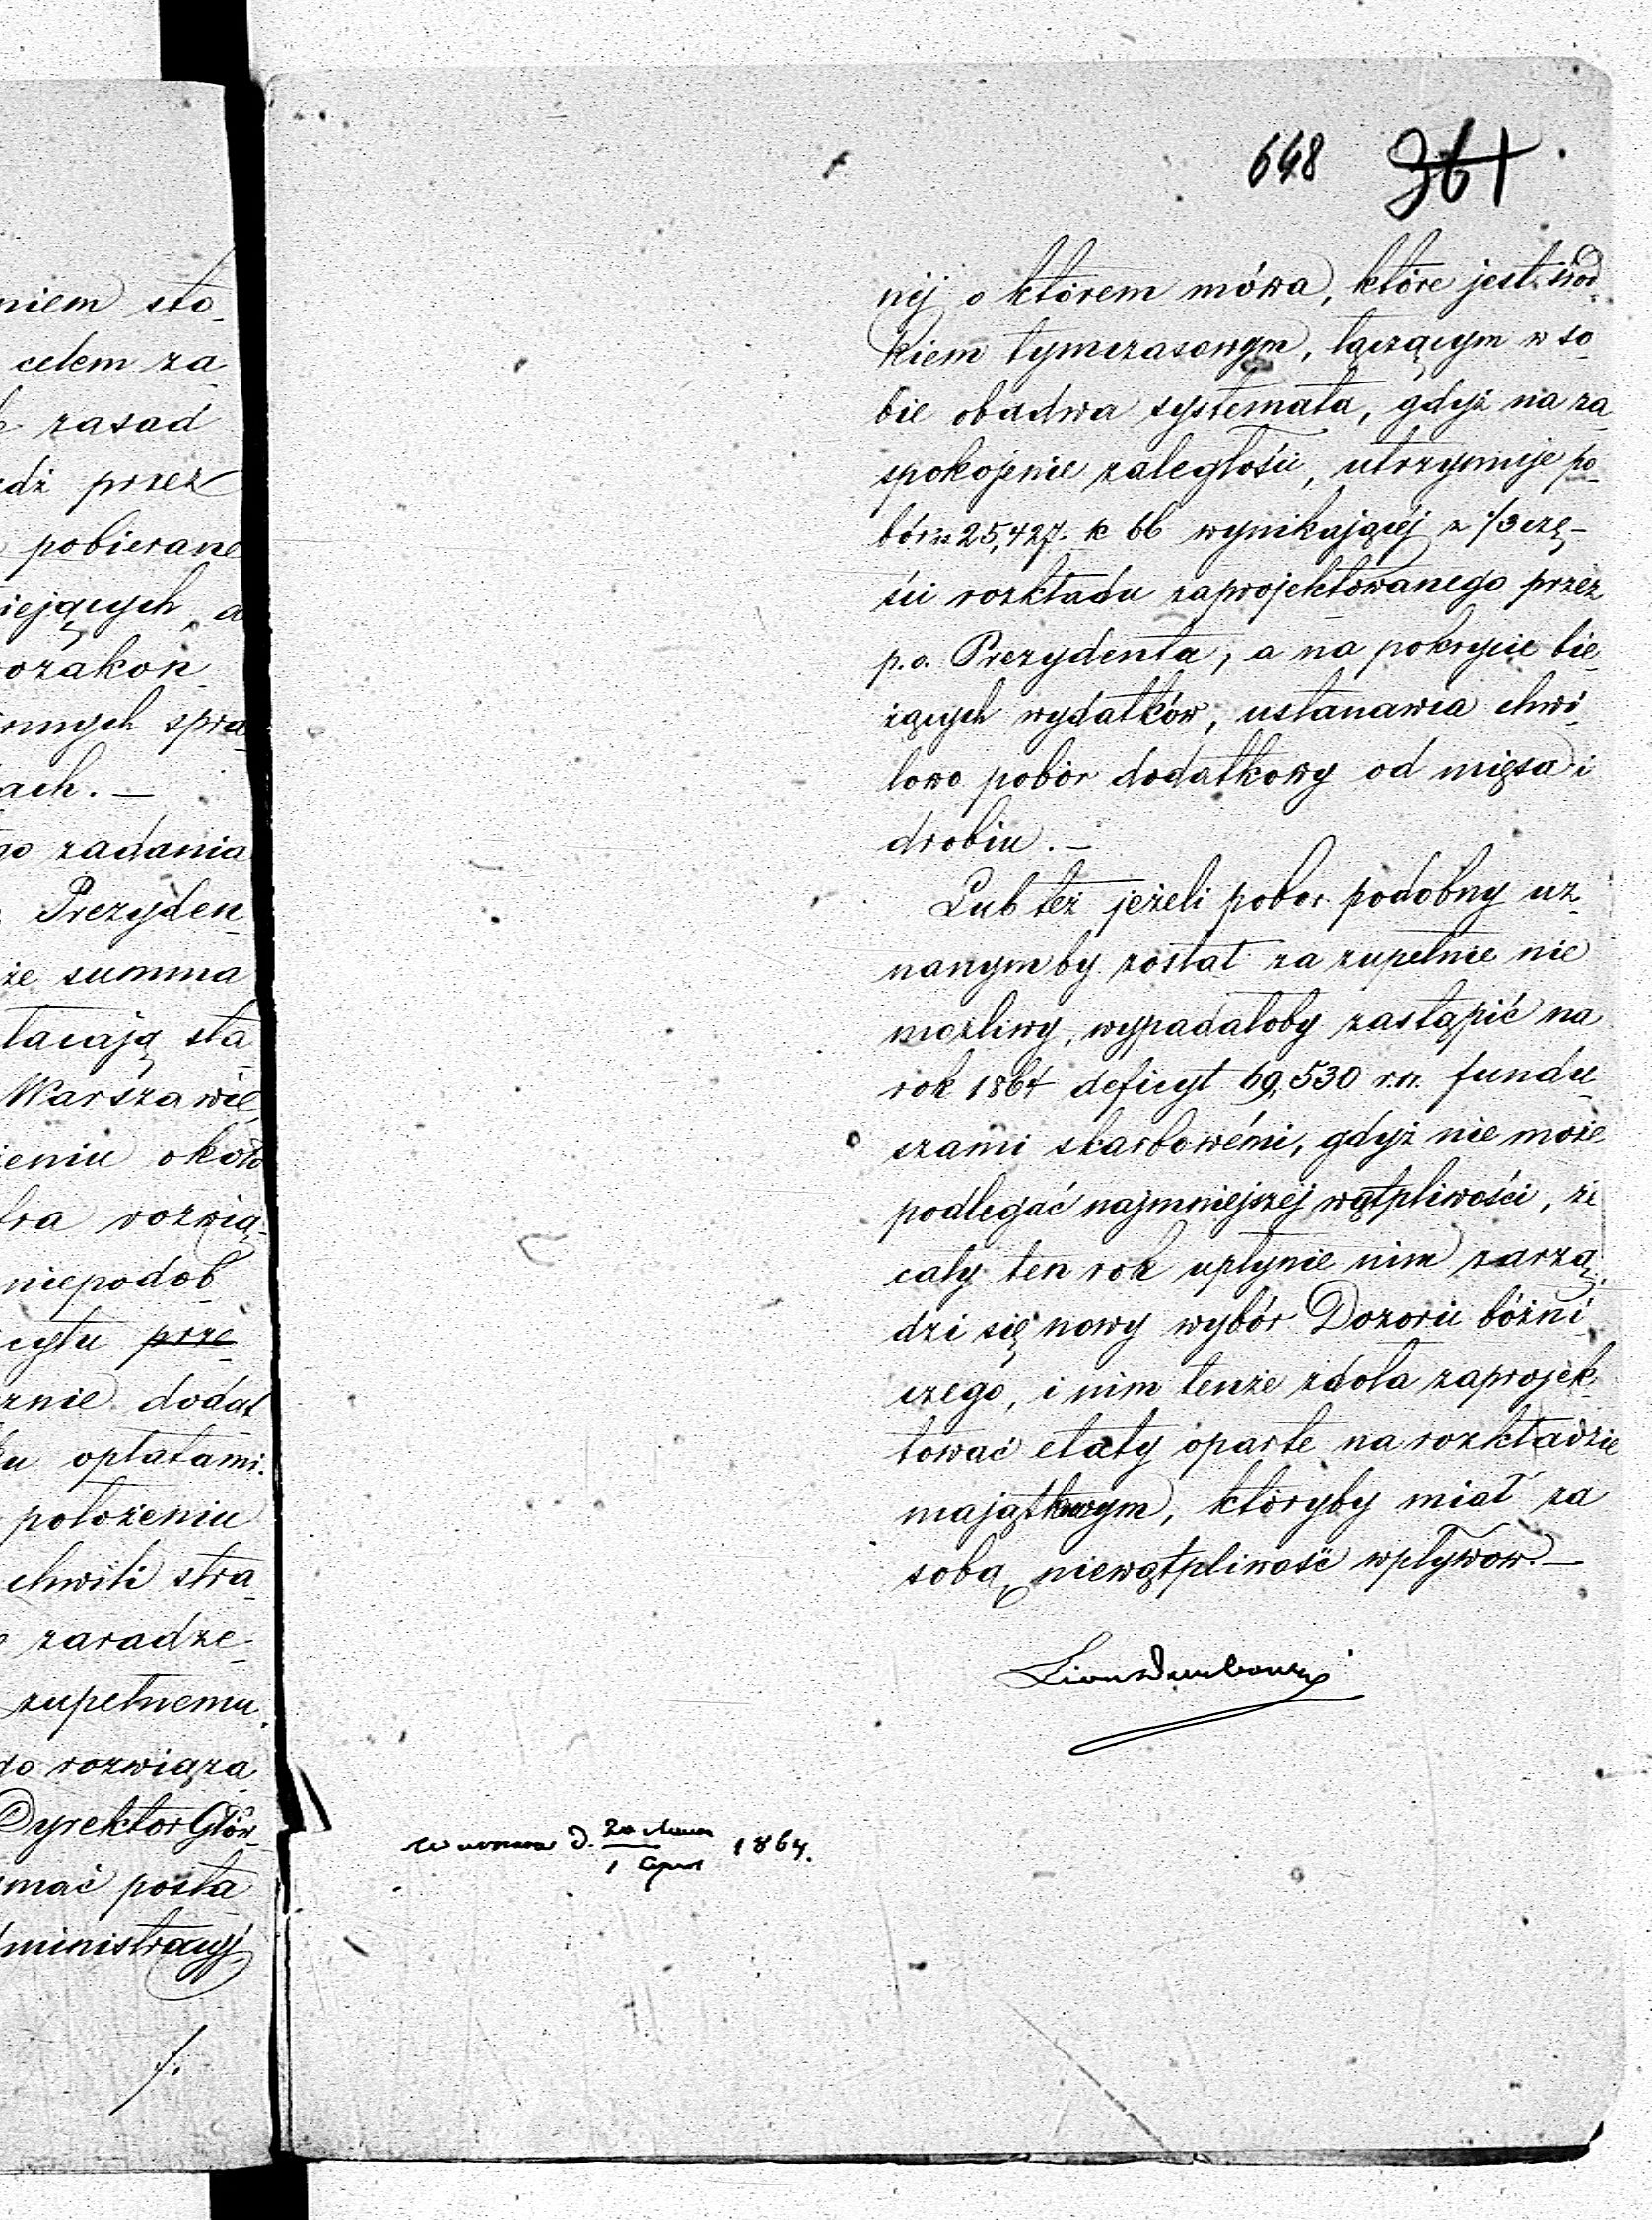 niem sto_
celem za_
zasad
dź przez
pobierane
iejących, a
ozakon_
nnych spra_
ach. —
go zadania
Prezyden_
że summa
tacają sta_
Warszawie
eniu około
rozwią_
niepodob_
cytu prze_
znie dodat_
u opłatami.
położeniu
chwili stra_
zaradze_
zupełnemu
go rozwiąza_
Dyrektor Głów_
mać posta_
ministracyj_
/.
648 361
nej o którem mówa, które jest środ_
kiem tymczasowym, łączącym w so_
bie obadwa systemata, gdyż na za_
spokojenie zaległości, utrzymuje po_
bór rs 25,427. k 66 wynikającej z 1/3 czę_
ści rozkładu zaprojektowanego przez
p.o. Prezydenta, a na pokrycie bie_
żących wydatków, ustanawia chwi_
lowo pobór dodatkowy od mięsa i
drobiu. —
Lub też jeżeli pobor podobny uz_
nanym by został za zupełnie nie
możliwy, wypadałoby zastąpić na
rok 1864 deficyt 69,530 r.s. fundu_
szami skarbowémi, gdyż nie może
podlegać najmniejszej wątpliwości, że
cały ten rok upłynie nim zarzą_
dzi się nowy wybór Dozoru bóżni_
czego, i nim tenże zdoła zaprojek_
tować etaty oparte na rozkładzie
majątkowym, któryby miał za
sobą niewątpliwość wpływow. —
d. 20 Marca
1 Apr 1864.